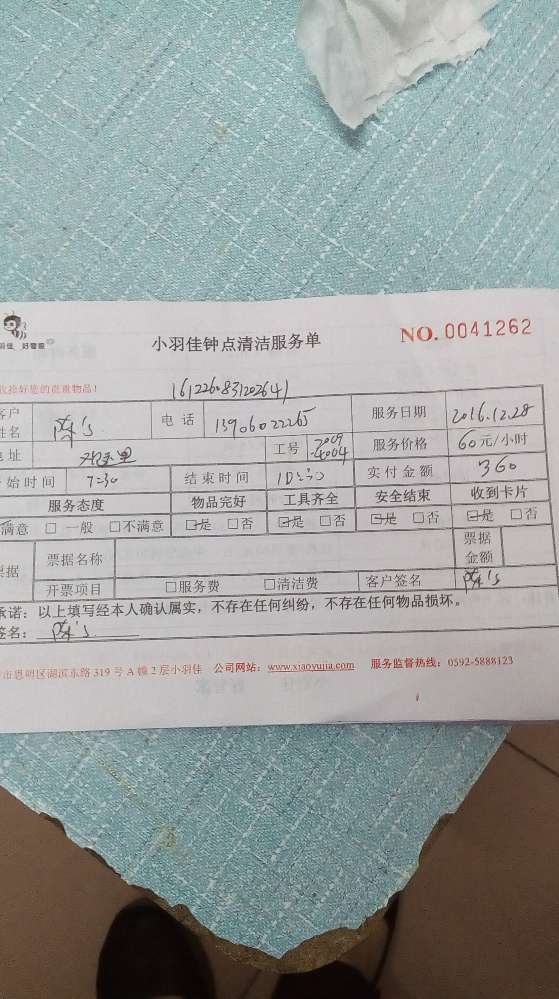 好管服
小羽佳钟点清洁服务单
NO. 0041262
收拾好您的贵重物品!
161226083120264
客户姓名 电话 13906022265 服务日期 2016.12.28
地址 工号 2009 4004 服务价格 60元/小时
始时间 7:30 结束时间 10:30 实付金额 360
服务态度 物品完好 工具齐全 安全结束 收到卡片
满意 □一般 □不满意 □是 □否 □是 □否 □是 □否 □是 □否
票据 票据名称 票据金额
开票项目 □服务费 □清洁费 客户签名
承诺:以上填写经本人确认属实,不存在任何纠纷,不存在任何物品损坏。
签名:
市思明区湖滨东路319号A幢2层小羽佳 公司网站:www.xiaoyujia.com 服务监督热线:0592-5888123